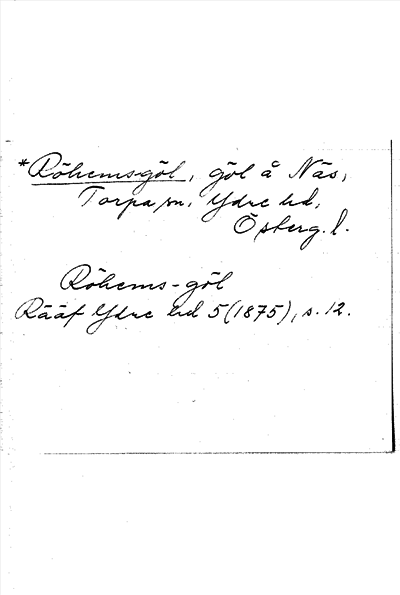 *Röhemsgöl, göl å Näs,
Torpa sn, Ydre hd,
Österg. l.
Röhems-göl
Rääf Ydre hd 5(1875), s. 12.